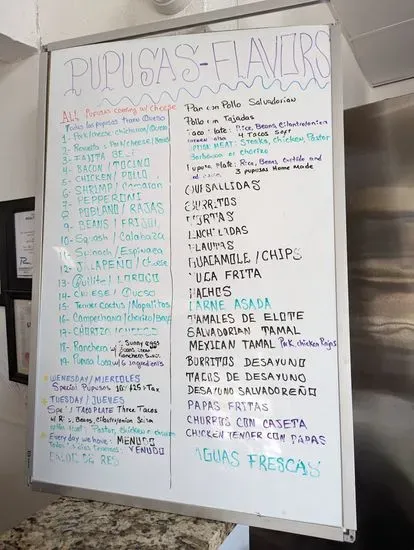 PUPUSAS-FLAVORS
ALL Pupusas coming w/ cheese
Todas las pupusas traen Queso
1- Pork/cheese-chicharron/Queso
2- Revuelta = Pork/cheese/Beans
3- FAJITA BEEF
4- BACON / TOCINO
5- CHICKEN / POLLO
6- SHRIMP / Camaron
7- PEPPERONI
8- POBLANO / RAJAS
9- BEANS / FRIJOL
10- Squash / Calabaza
Spinach / Espinaca
12- JALAPEÑO / Cheese
13- LOROCO
14- CHEESE / Queso
15- Tender Cactus / Nopalitos
16- Camperchana / chorizo/Beans
17- CHORIZO / CHEESE
18- Ranchera w/ Sunny eggs
19- Pupusa Loca w/ 6 ingredients
WENESDAY / MIERCOLES
Special Pupusas + Tax
TUESDAY / JUEVES
TACO PLATE Three Tacos
w/ Rice, Beans,
Pastor, Chicken or chorizo
Every day we have: MENUDO
CALDO DE RES
Pan con Pollo Salvadorian
Pollo con Tajadas
Taco Plate: Rice, Beans,
4 Tacos Soft
MEAT: Steak, chicken, Pastor
Barbacoa or chorizo
Pupusa Plate: Rice, Beans, Curtido and
3 pupusas Home made
QUESADILLAS
BURRITOS
TORTAS
ENCHILADAS
FLAUTAS
GUACAMOLE / CHIPS
YUCA FRITA
NACHOS
CARNE ASADA
TAMALES DE ELOTE
SALVADORIAN TAMAL
MEXICAN TAMAL Pork, chicken, Rajas
BURRITOS DESAYUNO
TACOS DE DESAYUNO
DESAYUNO SALVADOREÑO
PAPAS FRITAS
CHURROS CON CASETA
CHICKEN TENDER CON PAPAS
AGUAS FRESCAS